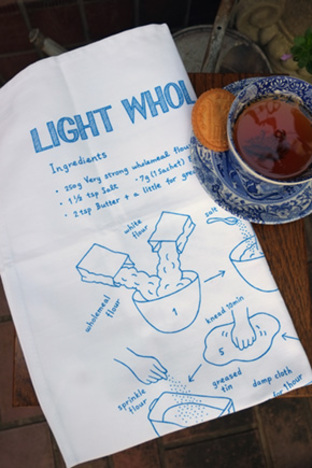 LIGHT WHOL
Ingredients
250g Very strong wholemeal flour
1½ tsp Salt • 7g (1 Sachet)
2 tsp Butter + a little for grea
white flour
salt
wholemeal flour
1
knead 10min
5
sprinkle flour
greased tin
damp cloth for 1 hour